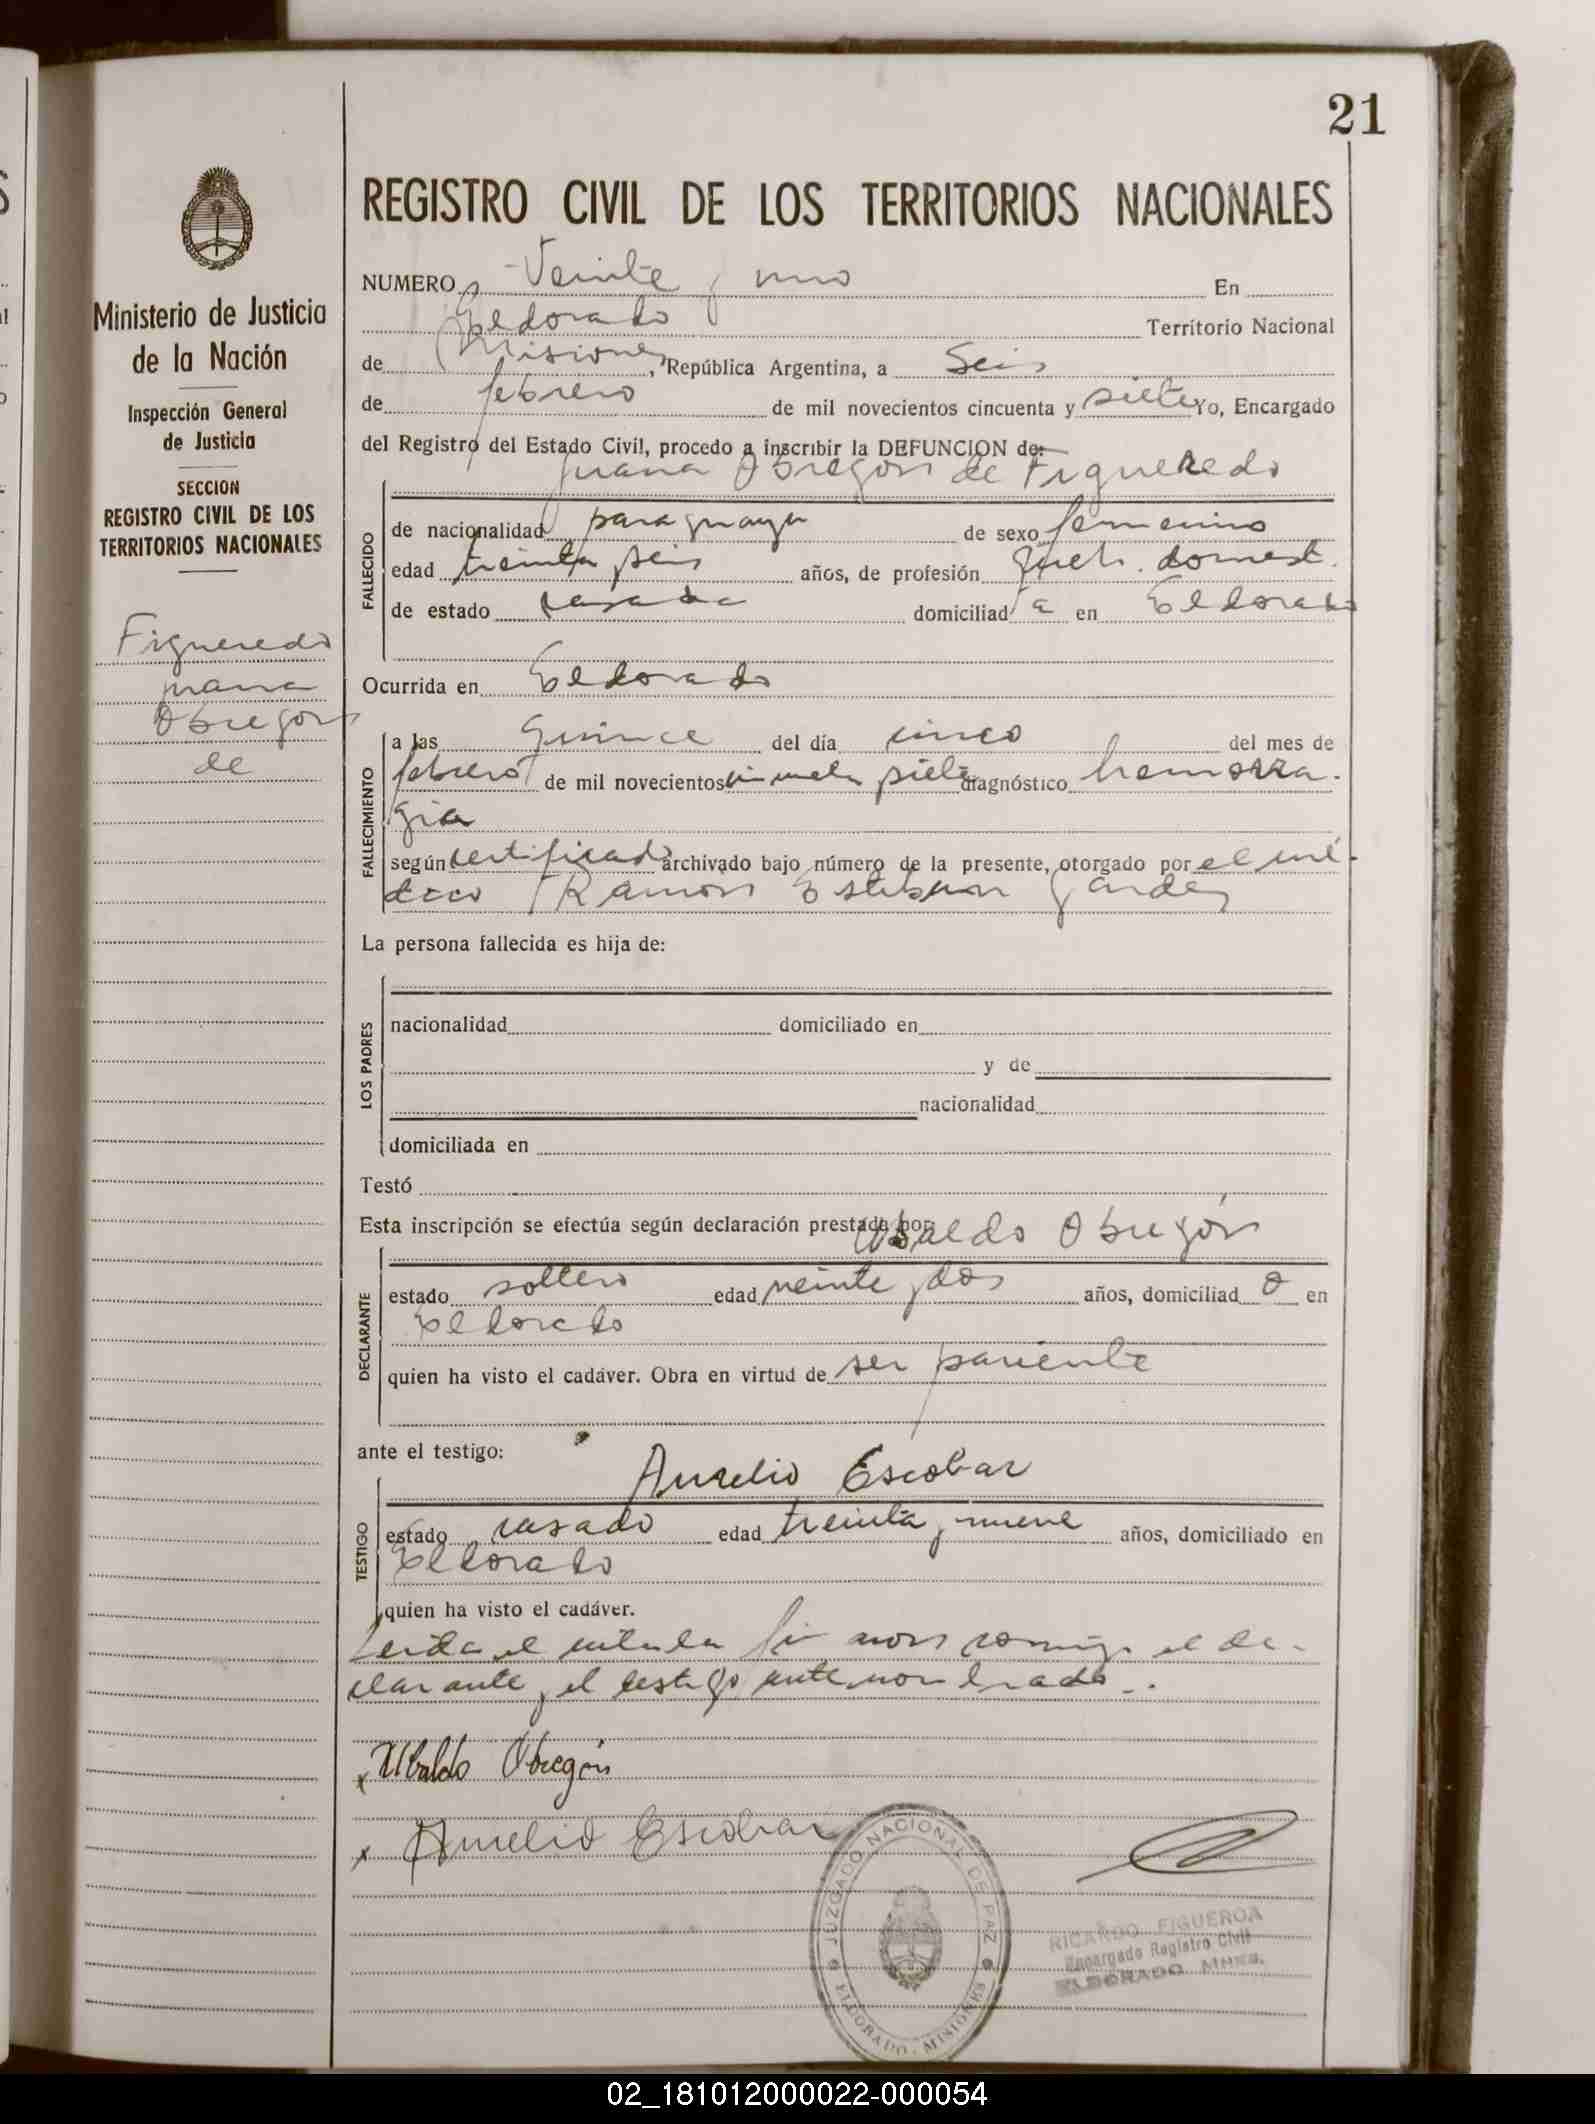 21
REGISTRO CIVIL DE LOS TERRITORIOS NACIONALES
Ministerio de Justicia
de la Nación
Inspección General
de Justicia
SECCION
REGISTRO CIVIL DE LOS
TERRITORIOS NACIONALES
Figueredo
Juana
Obregon
de
NUMERO Veinte y uno En
Eldorado Territorio Nacional
de Misiones, República Argentina, a Seis
de febrero de mil novecientos cincuenta y siete Yo, Encargado
del Registro del Estado Civil, procedo a inscribir la DEFUNCION de:
Juana Obregon de Figueredo
FALLECIDO
de nacionalidad paraguaya de sexo femenino
edad treinta y seis años, de profesión Queh. domest.
de estado casada domiciliad a en Eldorado
Ocurrida en Eldorado
FALLECIMIENTO
a las Quince del día cinco del mes de
febrero de mil novecientos siete diagnóstico hemorra-
gia
según certificado archivado bajo número de la presente, otorgado por el mé-
dico Ramon Esteban
La persona fallecida es hija de:
LOS PADRES
nacionalidad domiciliado en
y de
nacionalidad
domiciliada en
Testó
Esta inscripción se efectúa según declaración prestada por: Ubaldo Obregón
DECLARANTE
estado soltero edad veinte y dos años, domiciliad o en
Eldorado
quien ha visto el cadáver. Obra en virtud de ser pariente
ante el testigo:
Aurelio Escobar
TESTIGO
estado casado edad treinta y nueve años, domiciliado en
Eldorado
quien ha visto el cadáver.
Leida el conmigo el de-
clarante y el testigo antenombrado.
x Ubaldo Obregón
x Aurelio Escobar
JUZGADO NACIONAL DE PAZ
ELDORADO - MISIONES
RICARDO FIGUEROA
Encargado Registro Civil
ELDORADO MNES.
02_181012000022-000054